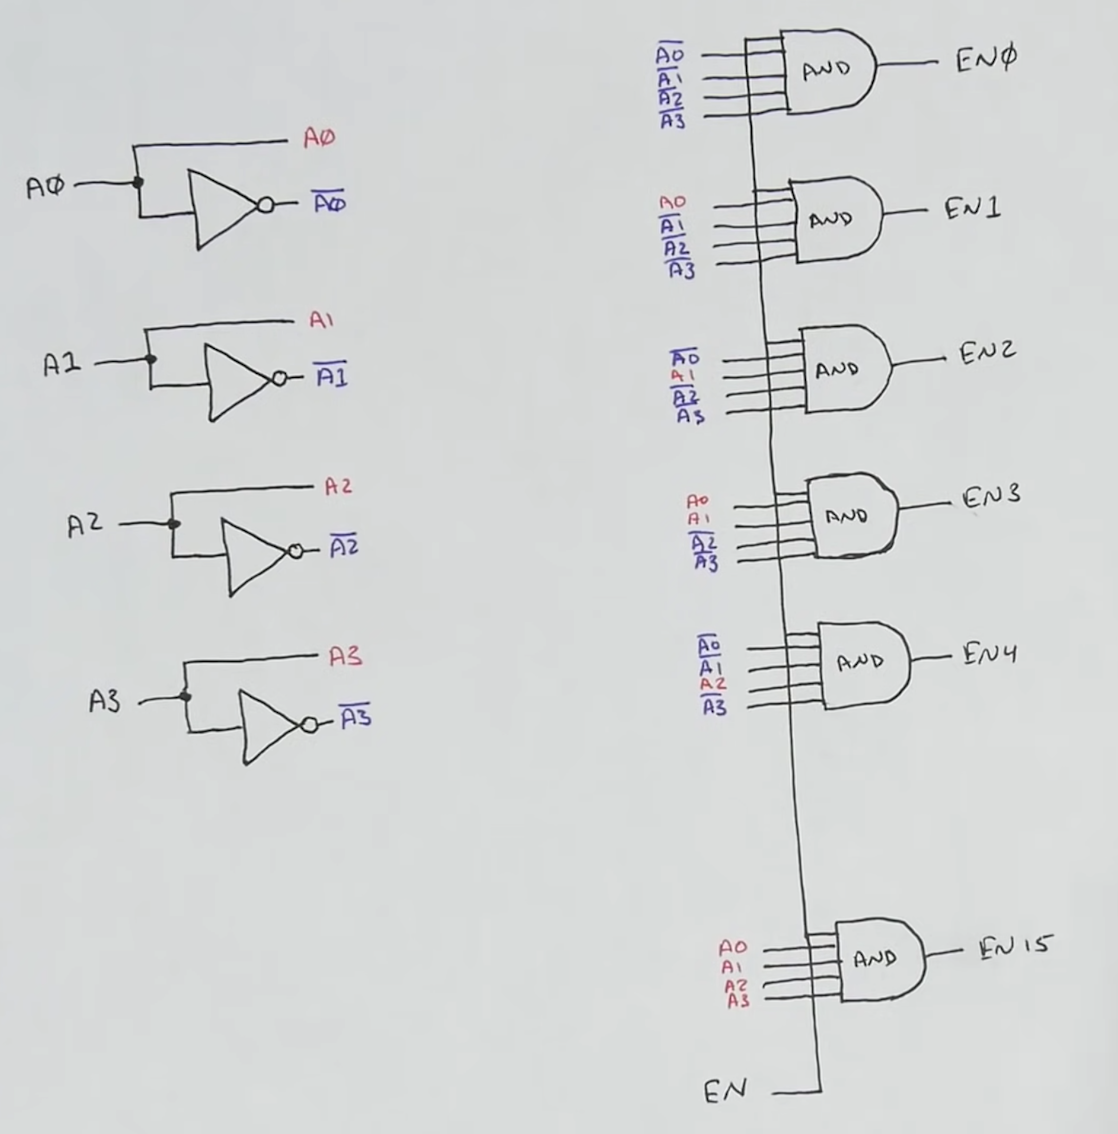 A0
A0
A̅0̅
A1
A1
A̅1̅
A2
A2
A̅2̅
A3
A3
A̅3̅
A̅0̅
A̅1̅
A̅2̅
A̅3̅
AND
EN0
A0
A̅1̅
A̅2̅
A̅3̅
AND
EN1
A̅0̅
A1
A̅2̅
A̅3̅
AND
EN2
A0
A1
A̅2̅
A̅3̅
AND
EN3
A̅0̅
A̅1̅
A2
A̅3̅
AND
EN4
A0
A1
A2
A3
AND
EN15
EN